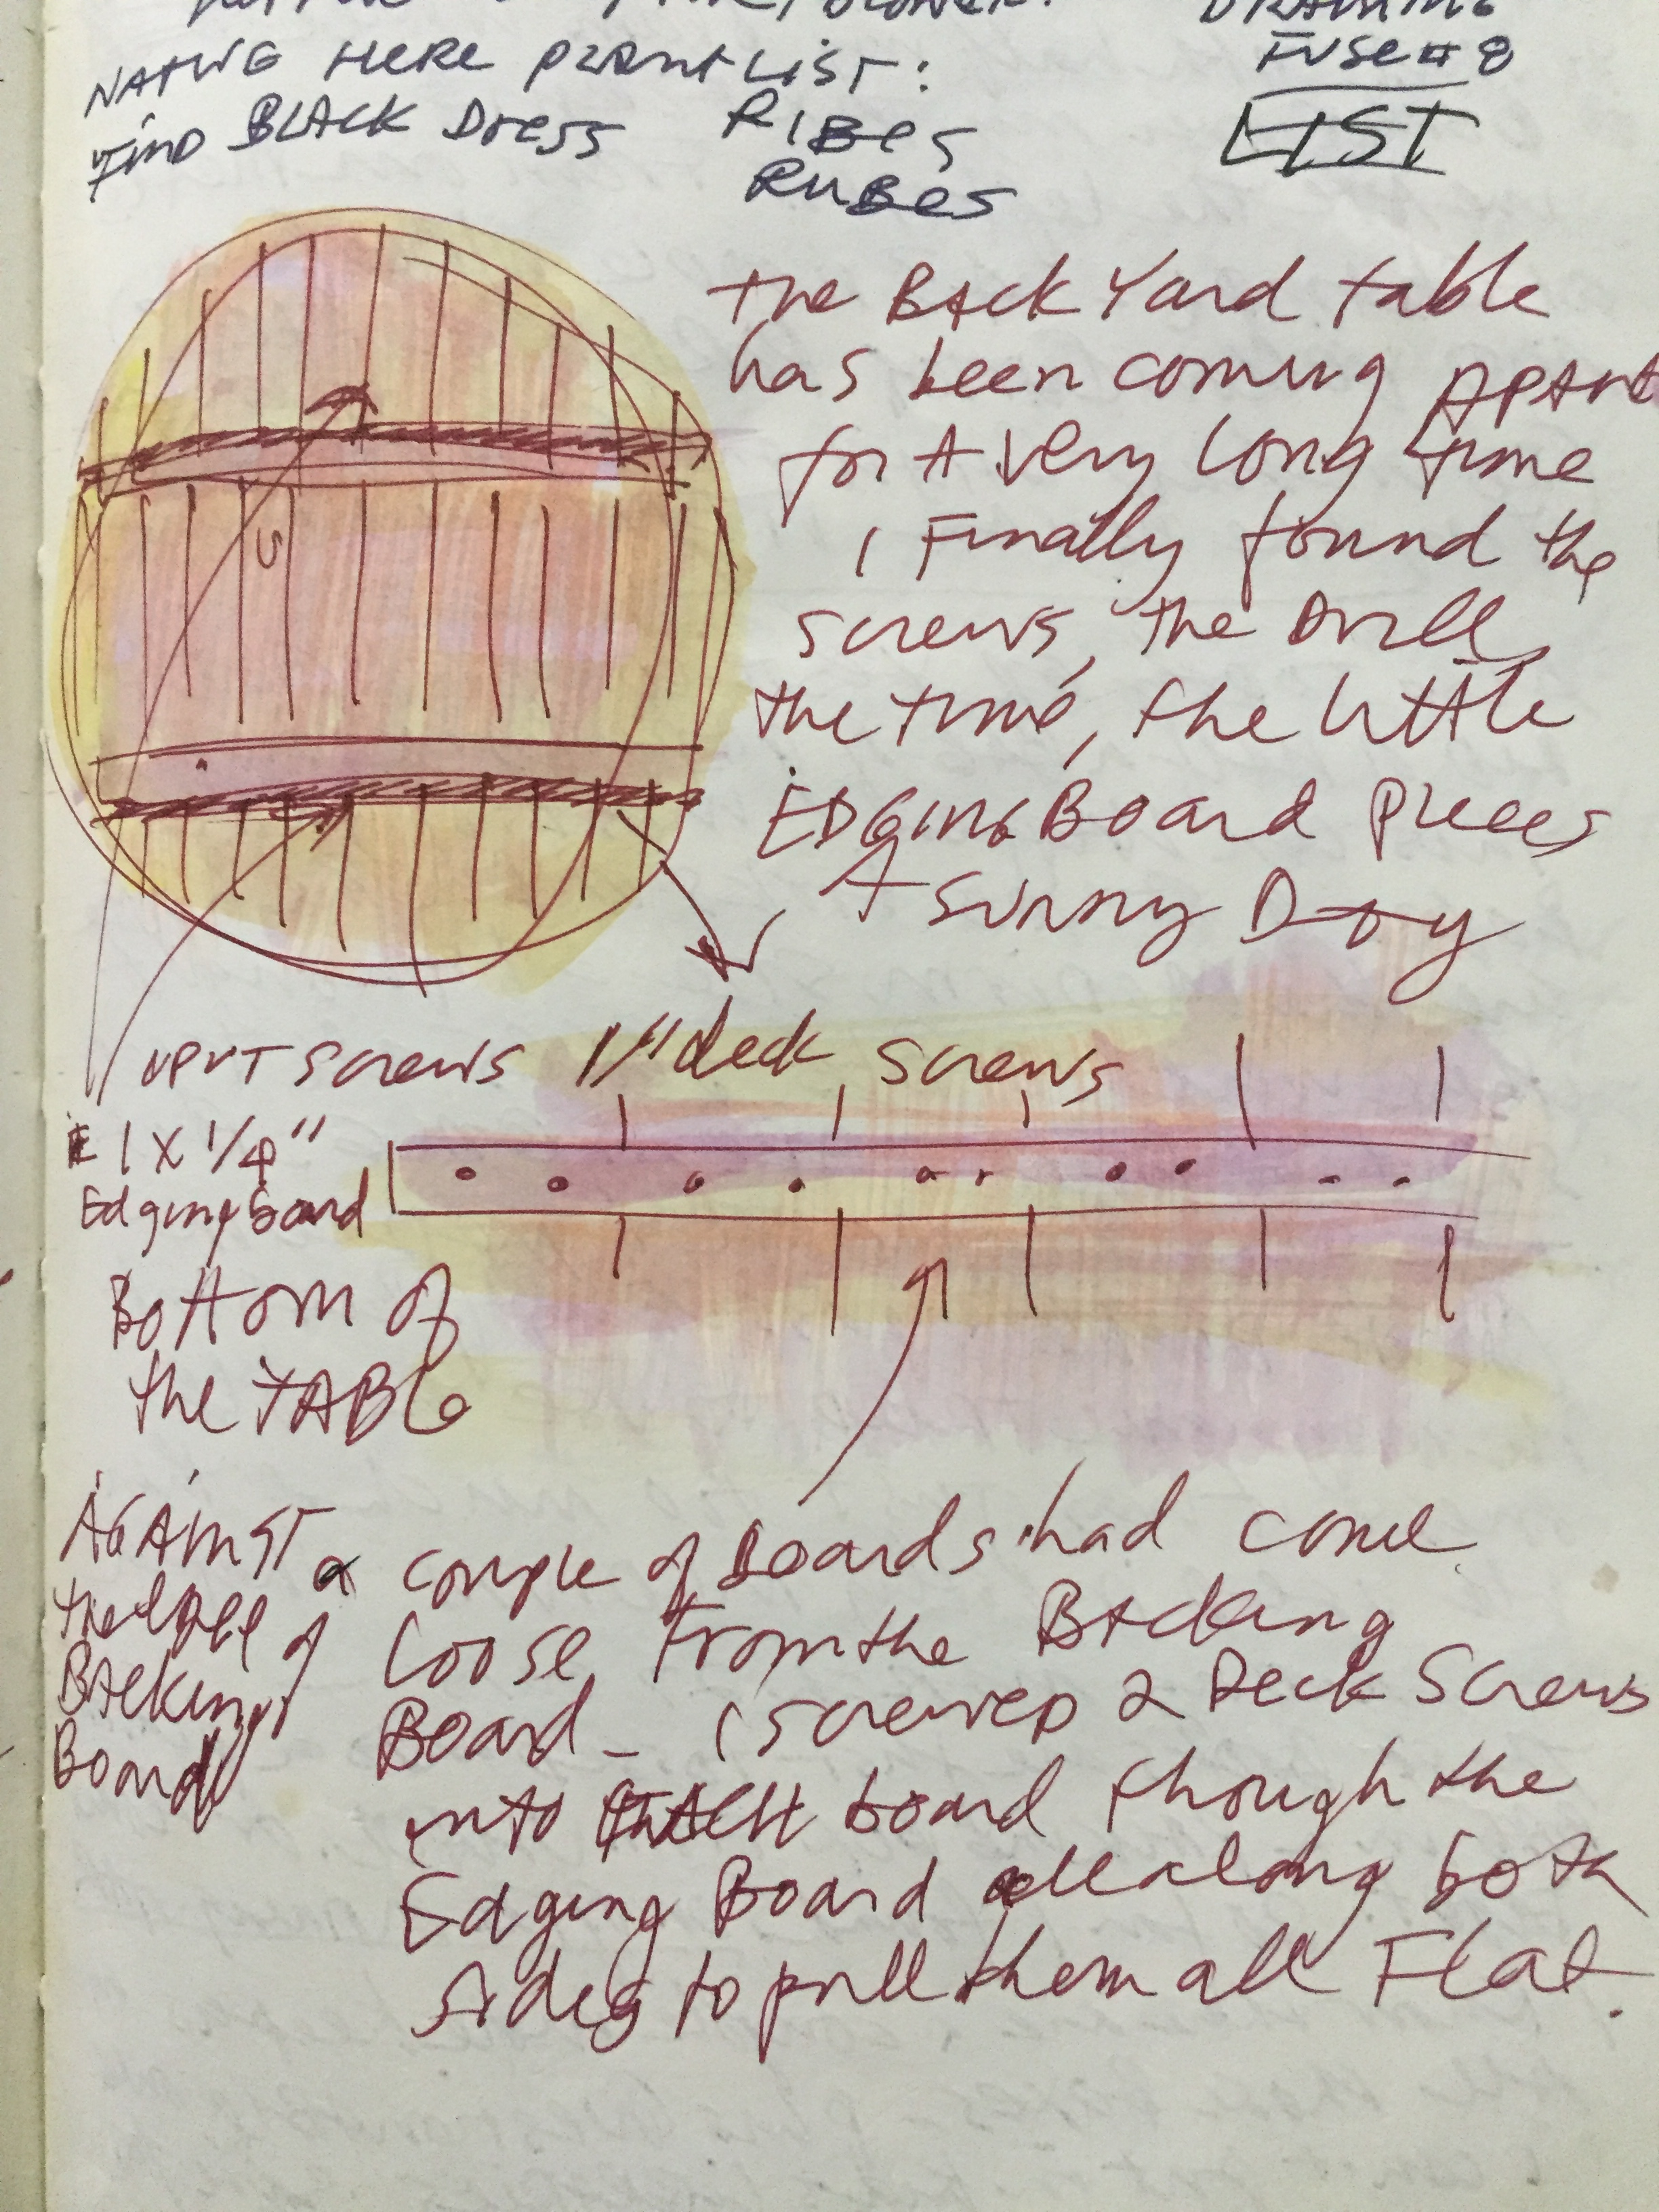 DRAWING
NATIVE HERE PLANT LIST:
FUSE # 8
FIND BLACK Dress
RIBES
LIST
RUBES
the BACK Yard table
has been coming APART
for A very long time
I Finally found the
screws, the Drill,
the time, the little
EDGING Board pieces
A Sunny Day
screws 1" deck screws
1 X 1/4"
Edging board
Bottom of
the TABLE
AGAINST
the edge of
BACKing
Board
a couple of Boards had come
loose From the Backing
Board - I screwed 2 Deck Screws
into EACH board though the
Edging Board all along both
sides to pull them all Flat.